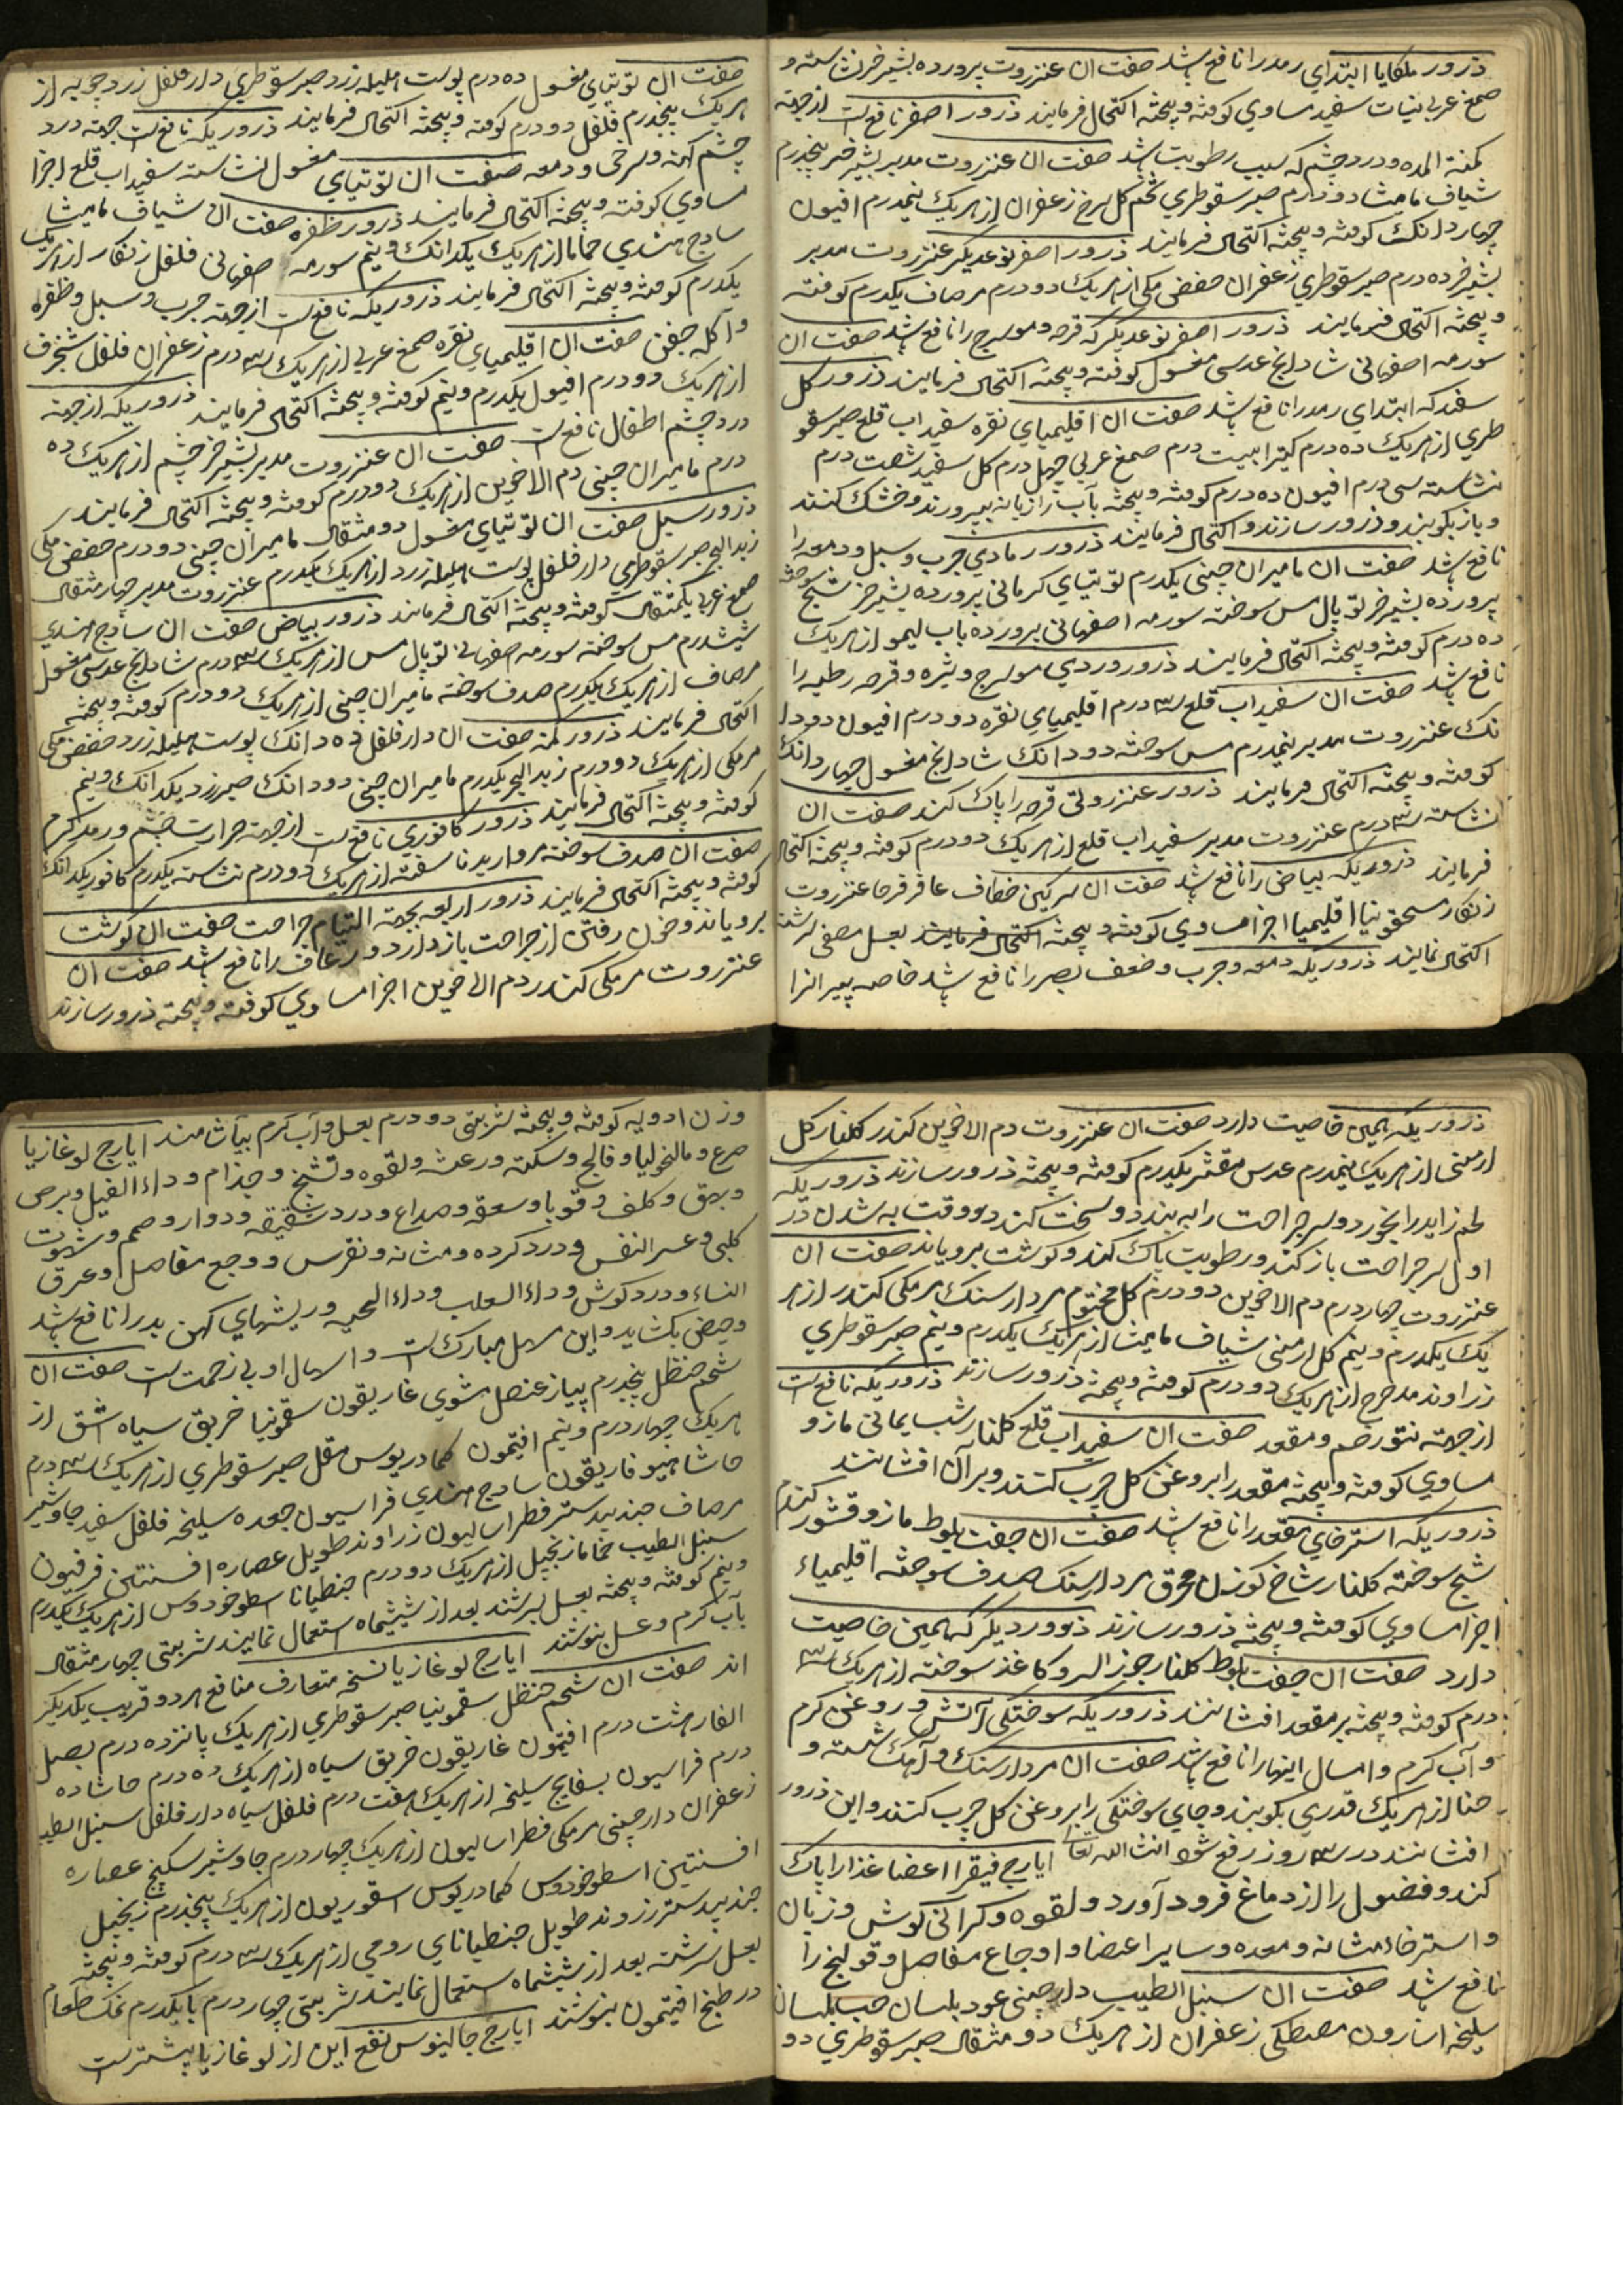 ذرور ملکایا ابتدای رمد را نافع باشد صفت ان عنزروت پرورده بشیر خر نشاسته و
صمغ عربی نبات سفید مساوی کوفته و بیخته اکتحال فرمایند ذرور اصفر نافع است از جهته
کمنة المده و درد چشم که بسبب رطوبت باشد صفت ان عنزروت مدبر بشیر خر پنجدرم
شیاف مامیثا دو درم صبر سقوطری تخم کل سرخ زعفران از هریک نیمدرم افیون
چهار دانک کوفته و بیخته اکتحال فرمایند ذرور اصفر نوعدیکر عنزروت مدبر
بشیر خر ده درم صبر سقوطری زعفران حضض مکی از هریک دو درم مرصاف یکدرم کوفته
و بیخته اکتحال فرمایند ذرور اصفر نوعدیکر که قرحه و مورسرج را نافع باشد صفت ان
سورمه اصفهانی شادنج عدسی مغسول کوفته و بیخته اکتحال فرمایند ذرور کل
سفید که ابتدای رمد را نافع باشد صفت ان اقلیمیای نقره سفیداب قلع صبر سقو
طری از هریک ده درم کتیرا بیست درم صمغ عربی چهل درم کل سفید شصت درم
نشاسته سی درم افیون ده درم کوفته و بیخته بآب رازیانه بپرورند و خشک کنند
و باز بکوبند و ذرور سازند و اکتحال فرمایند ذرور رمادی جرب و سبل و دمعه را
نافع باشد صفت ان مامیران چینی یکدرم توتیای کرمانی پرورده بشیر خر شبح سوخته
پرورده بشیر خر توبال مس سوخته سورمه اصفهانی پرورده باب لیمو از هریک
ده درم کوفته و بیخته اکتحال فرمایند ذرور وردی مورسرج و بثره و قرحه رطبه را
نافع باشد صفت ان سفیداب قلع سه درم اقلیمیای نقره دو درم افیون دو دا
نک عنزروت مدبر نیمدرم مس سوخته دو دانک شادنج مغسول چهار دانک
کوفته و بیخته اکتحال فرمایند ذرور عنزروتی قرحه را پاک کند صفت ان
نشاسته سه درم عنزروت مدبر سفیداب قلع از هریک دو درم کوفته و بیخته اکتحال
فرمایند ذروریکه بیاض را نافع باشد صفت ان سرکین خطاف عاقرقرحا عنزروت
زنکار مسحقونیا اقلیمیا اجزا مساوی کوفته و بیخته اکتحال فرمایند بعسل مصفی سرشته
اکتحال نمایند ذروریکه دمعه و جرب و ضعف بصر را نافع باشد خاصه پیرانرا
صفت ان توتیای مغسول ده درم پوست هلیله زرد صبر سقوطری دارفلفل زردچوبه از
هریک پنجدرم فلفل دو درم کوفته و بیخته اکتحال فرمایند ذروریکه نافعست جهته درد
چشم کهنه و سرخی و دمعه صفت ان توتیای مغسول نشاسته سفیداب قلع اجزا
مساوی کوفته و بیخته اکتحال فرمایند ذرور ظفره صفت ان شیاف مامیثا
سادج هندی حماما از هریک یکدانک و نیم سورمه اصفهانی فلفل زنکار از هریک
یکدرم کوفته و بیخته اکتحال فرمایند ذروریکه نافعست از جهته جرب و سبل و ظفره
و آکله جفن صفت ان اقلیمیای نقره صمغ عربی از هریک سه درم زعفران فلفل شنجرف
از هریک دو درم افیون یکدرم و نیم کوفته و بیخته اکتحال فرمایند ذروریکه از جهته
درد چشم اطفال نافعست صفت ان عنزروت مدبر بشیر خر چشم از هریک ده
درم مامیران چینی دم الاخوین از هریک دو درم کوفته و بیخته اکتحال فرمایند
ذرور سبل صفت ان توتیای مغسول دو مثقال مامیران چینی دو درم حضض مکی
زبد البحر صبر سقوطری دارفلفل پوست هلیله زرد از هریک یکدرم عنزروت مدبر چهار مثقال
صمغ عربی یکمثقال کوفته و بیخته اکتحال فرمایند ذرور بیاض صفت ان سادج هندی
ششدرم مس سوخته سورمه اصفهانی توبال مس از هریک سه درم شادنج عدسی مغسول
مرصاف از هریک یکدرم صدف سوخته مامیران چینی از هریک دو درم کوفته و بیخته
اکتحال فرمایند ذرور کمنه صفت ان دارفلفل ده دانک پوست هلیله زرد حضض مکی
مرمکی از هریک دو درم زبد البحر یکدرم مامیران چینی دو دانک صبر زرد یکدانک و نیم
کوفته و بیخته اکتحال فرمایند ذرور کافوری نافعست از جهته حرارت چشم و رمد کرم
صفت ان صدف سوخته مروارید ناسفته از هریک دو درم نشاسته یکدرم کافور یکدانک
کوفته و بیخته اکتحال فرمایند ذرور اربعه بجهته التیام جراحت صفت ان کوشت
برویاند و خون رفتن از جراحت باز دارد و رعاف را نافع باشد صفت ان
عنزروت مرمکی کندر دم الاخوین اجزا مساوی کوفته و بیخته ذرور سازند
ذروریکه همین خاصیت دارد صفت ان عنزروت دم الاخوین کندر کلنار کل
ارمنی از هریک نیمدرم عدس مقشر یکدرم کوفته و بیخته ذرور سازند ذروریکه
لحم زاید را بخورد و سر جراحت را به بندد و سخت کند و بوقت به شدن در
اول سر جراحت باز کند و رطوبت پاک کند و کوشت برویاند صفت ان
عنزروت چهار درم دم الاخوین دو درم کل مختوم مردارسنک مرمکی کندر از هر
یک یکدرم و نیم کل ارمنی شیاف مامیثا از هریک یکدرم و نیم صبر سقوطری
زراوند مدحرج از هریک دو درم کوفته و بیخته ذرور سازند ذروریکه نافعست
از جهته نتو رحم و مقعد صفت ان سفیداب قلع کلنار شب یمانی مازو
مساوی کوفته و بیخته مقعد را بروغن کل چرب کنند و بر آن افشانند
ذروریکه استرخای مقعد را نافع باشد صفت ان جفت بلوط مازو قشور کندر
شبح سوخته کلنار شاخ کوزن محرق مردارسنک صدف سوخته اقلیمیاء
اجزا مساوی کوفته و بیخته ذرور سازند ذرور دیکر که همین خاصیت
دارد صفت ان جفت بلوط کلنار جوز السرو کاغذ سوخته از هریک سه
درم کوفته و بیخته بر مقعد افشانند ذروریکه سوختکی آتش و روغن کرم
و آب کرم و امثال اینها را نافع باشد صفت ان مردارسنک و آهک شسته و
حنا از هریک قدری بکوبند و جای سوختکی را بروغن کل چرب کنند و این ذرور
افشانند در سه روز رفع شود انشاالله تعا ایارج فیقرا اعضا غذا را پاک
کند و فضول را از دماغ فرود آورد و لقوه و کرانی کوش و زبان
و استرخاء مثانه و معده و سایر اعضا و اوجاع مفاصل و قولنج را
نافع باشد صفت ان سنبل الطیب دارچینی عود بلسان حب بلسان
سلیخه اسارون مصطکی زعفران از هریک دو مثقال صبر سقوطری دو
وزن ادویه کوفته و بیخته شربتی دو درم بعسل و آب کرم بیاشامند ایارج لوغازیا
صرع و مالنخولیا و فالج و سکته و رعشه و لقوه و تشنج و جذام و داء الفیل و برص
و بهق و کلف و قوبا و سعفه و صداع و درد شقیقه و دوار و صمم و شهوت
کلبی و عسر النفس و درد کرده و مثانه و نقرس و وجع مفاصل و عرق
النساء و درد کوش و داء الثعلب و داء الحیه و ریشهای کهن بد را نافع باشد
و حیض بکشاید و این مسهل مبارک است و اسهال او بی زحمت است صفت ان
شحم حنظل پنجدرم پیاز عنصل مشوی غاریقون سقمونیا خربق سیاه اشق از
هریک چهار درم و نیم افتیمون کمادریوس مقل صبر سقوطری از هریک سه درم
حاشا هیوفاریقون سادج هندی فراسیون جعده سلیخه فلفل سفید جاوشیر
مرصاف جندبیدستر فطراسالیون زراوند طویل عصاره افسنتین فرفیون
سنبل الطیب حماما زنجبیل از هریک دو درم جنطیانا اسطوخودوس از هریک یکدرم
و نیم کوفته و بیخته بعسل بسرشند بعد از ششماه استعمال نمایند شربتی چهار مثقال
بآب کرم و عسل بنوشند ایارج لوغازیا نسخه متعارف منافع هر دو قریب یکدیکر
اند صفت ان شحم حنظل سقمونیا صبر سقوطری از هریک پانزده درم بصل
الفار هشت درم افتیمون غاریقون خربق سیاه از هریک ده درم حاشا ده
درم فراسیون بسفایج سلیخه از هریک هفت درم فلفل سیاه دارفلفل سنبل الطیب
زعفران دارچینی مرمکی فطراسالیون از هریک چهار درم جاوشیر سکبینج عصاره
افسنتین اسطوخودوس کمادریوس اسقوریون از هریک پنجدرم زنجبیل
جندبیدستر زروند طویل جنطیانای رومی از هریک سه درم کوفته و بیخته
بعسل سرشته بعد از ششماه استعمال نمایند شربتی چهار درم با یکدرم نمک طعام
در طبخ افتیمون بنوشند ایارج جالینوس نفع این از لوغازیا بیشترست